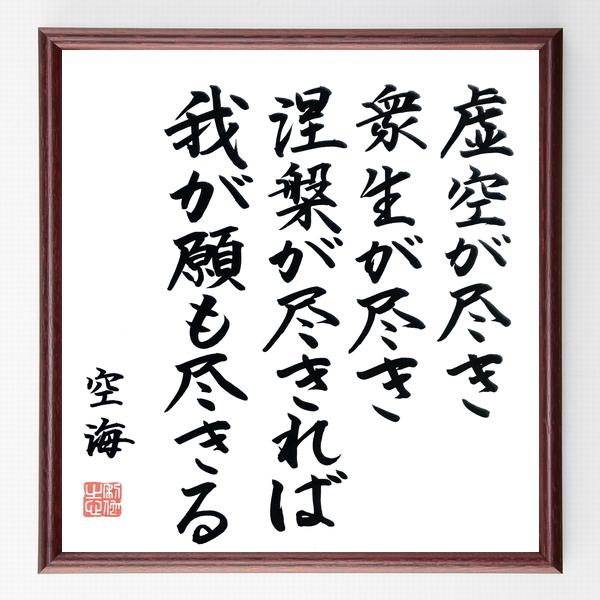 虚空が尽き
衆生が尽き
涅槃が尽きれば
我が願も尽きる
空海